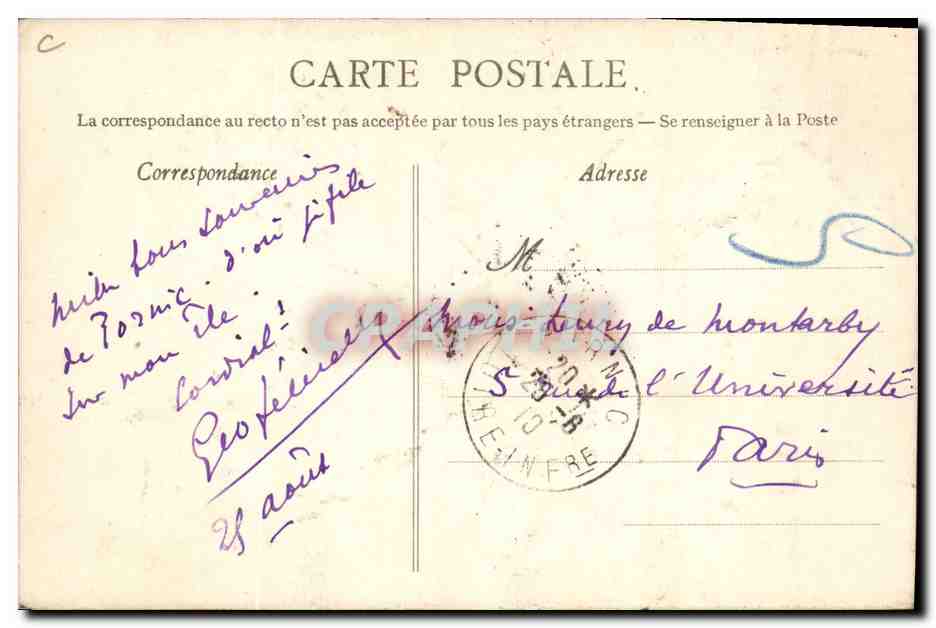 C
CARTE POSTALE
La correspondance au recto n'est pas acceptée par tous les pays étrangers — Se renseigner à la Poste
Correspondance
Adresse
bons souvenirs
de Pornic d'où je file
sur mon île.
Cordial
25 août
M
de Montarby
5 rue de l'Université
Paris
PORNIC
20 *
25 -8
10
LOIRE INFRE